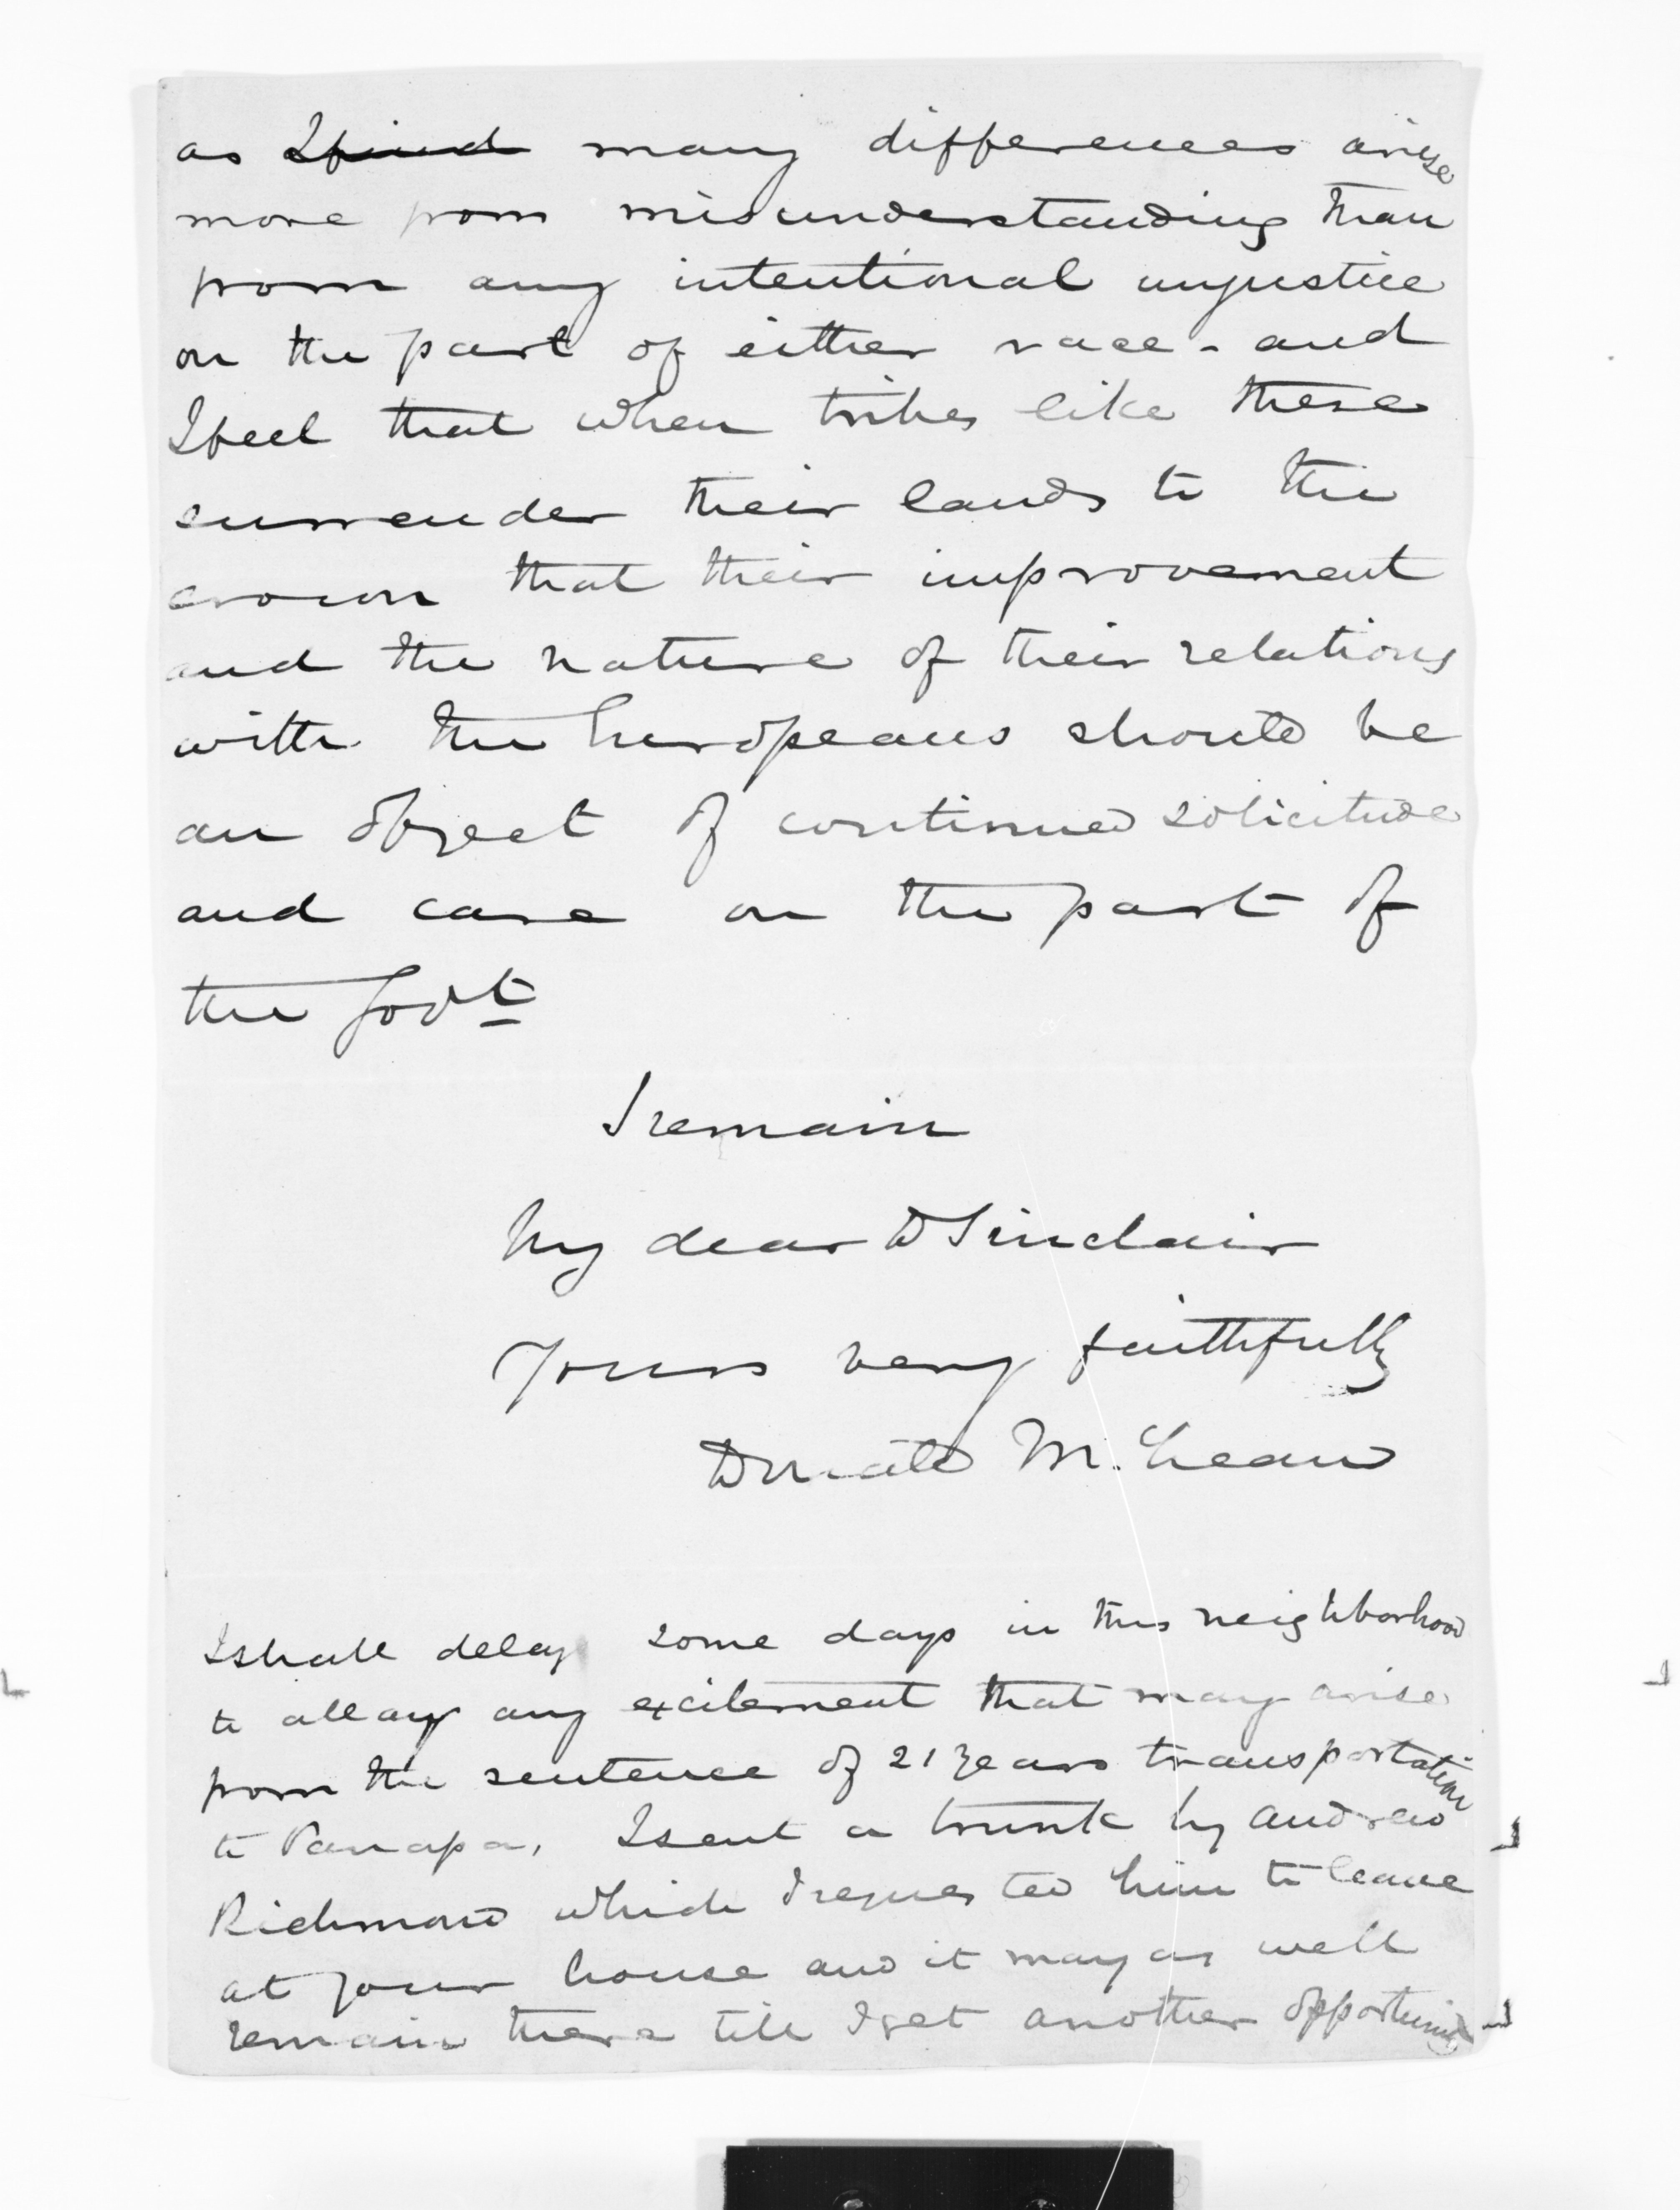 as ~~I find~~ many differences arise
more from misunderstanding than
from any intentional unjustice
on the part of either race - and
I feel that when tribes like these
surrender their lands to the
crown that their improvement
and the nature of their relations
with the Europeans should be
an object of continued solicitude
and care on the part of
the Govt
I remain
My dear Dr Sinclair
Yours very faithfully
Donald McLean
I shall delay some days in this neighborhood
to allay any excitement that may arise
from the sentence of 21 years transportation
to Panapa, I sent a trunk by Andrew
Richmond which I requested him to leave
at your house and it may as well
remain there till I get another opportunity